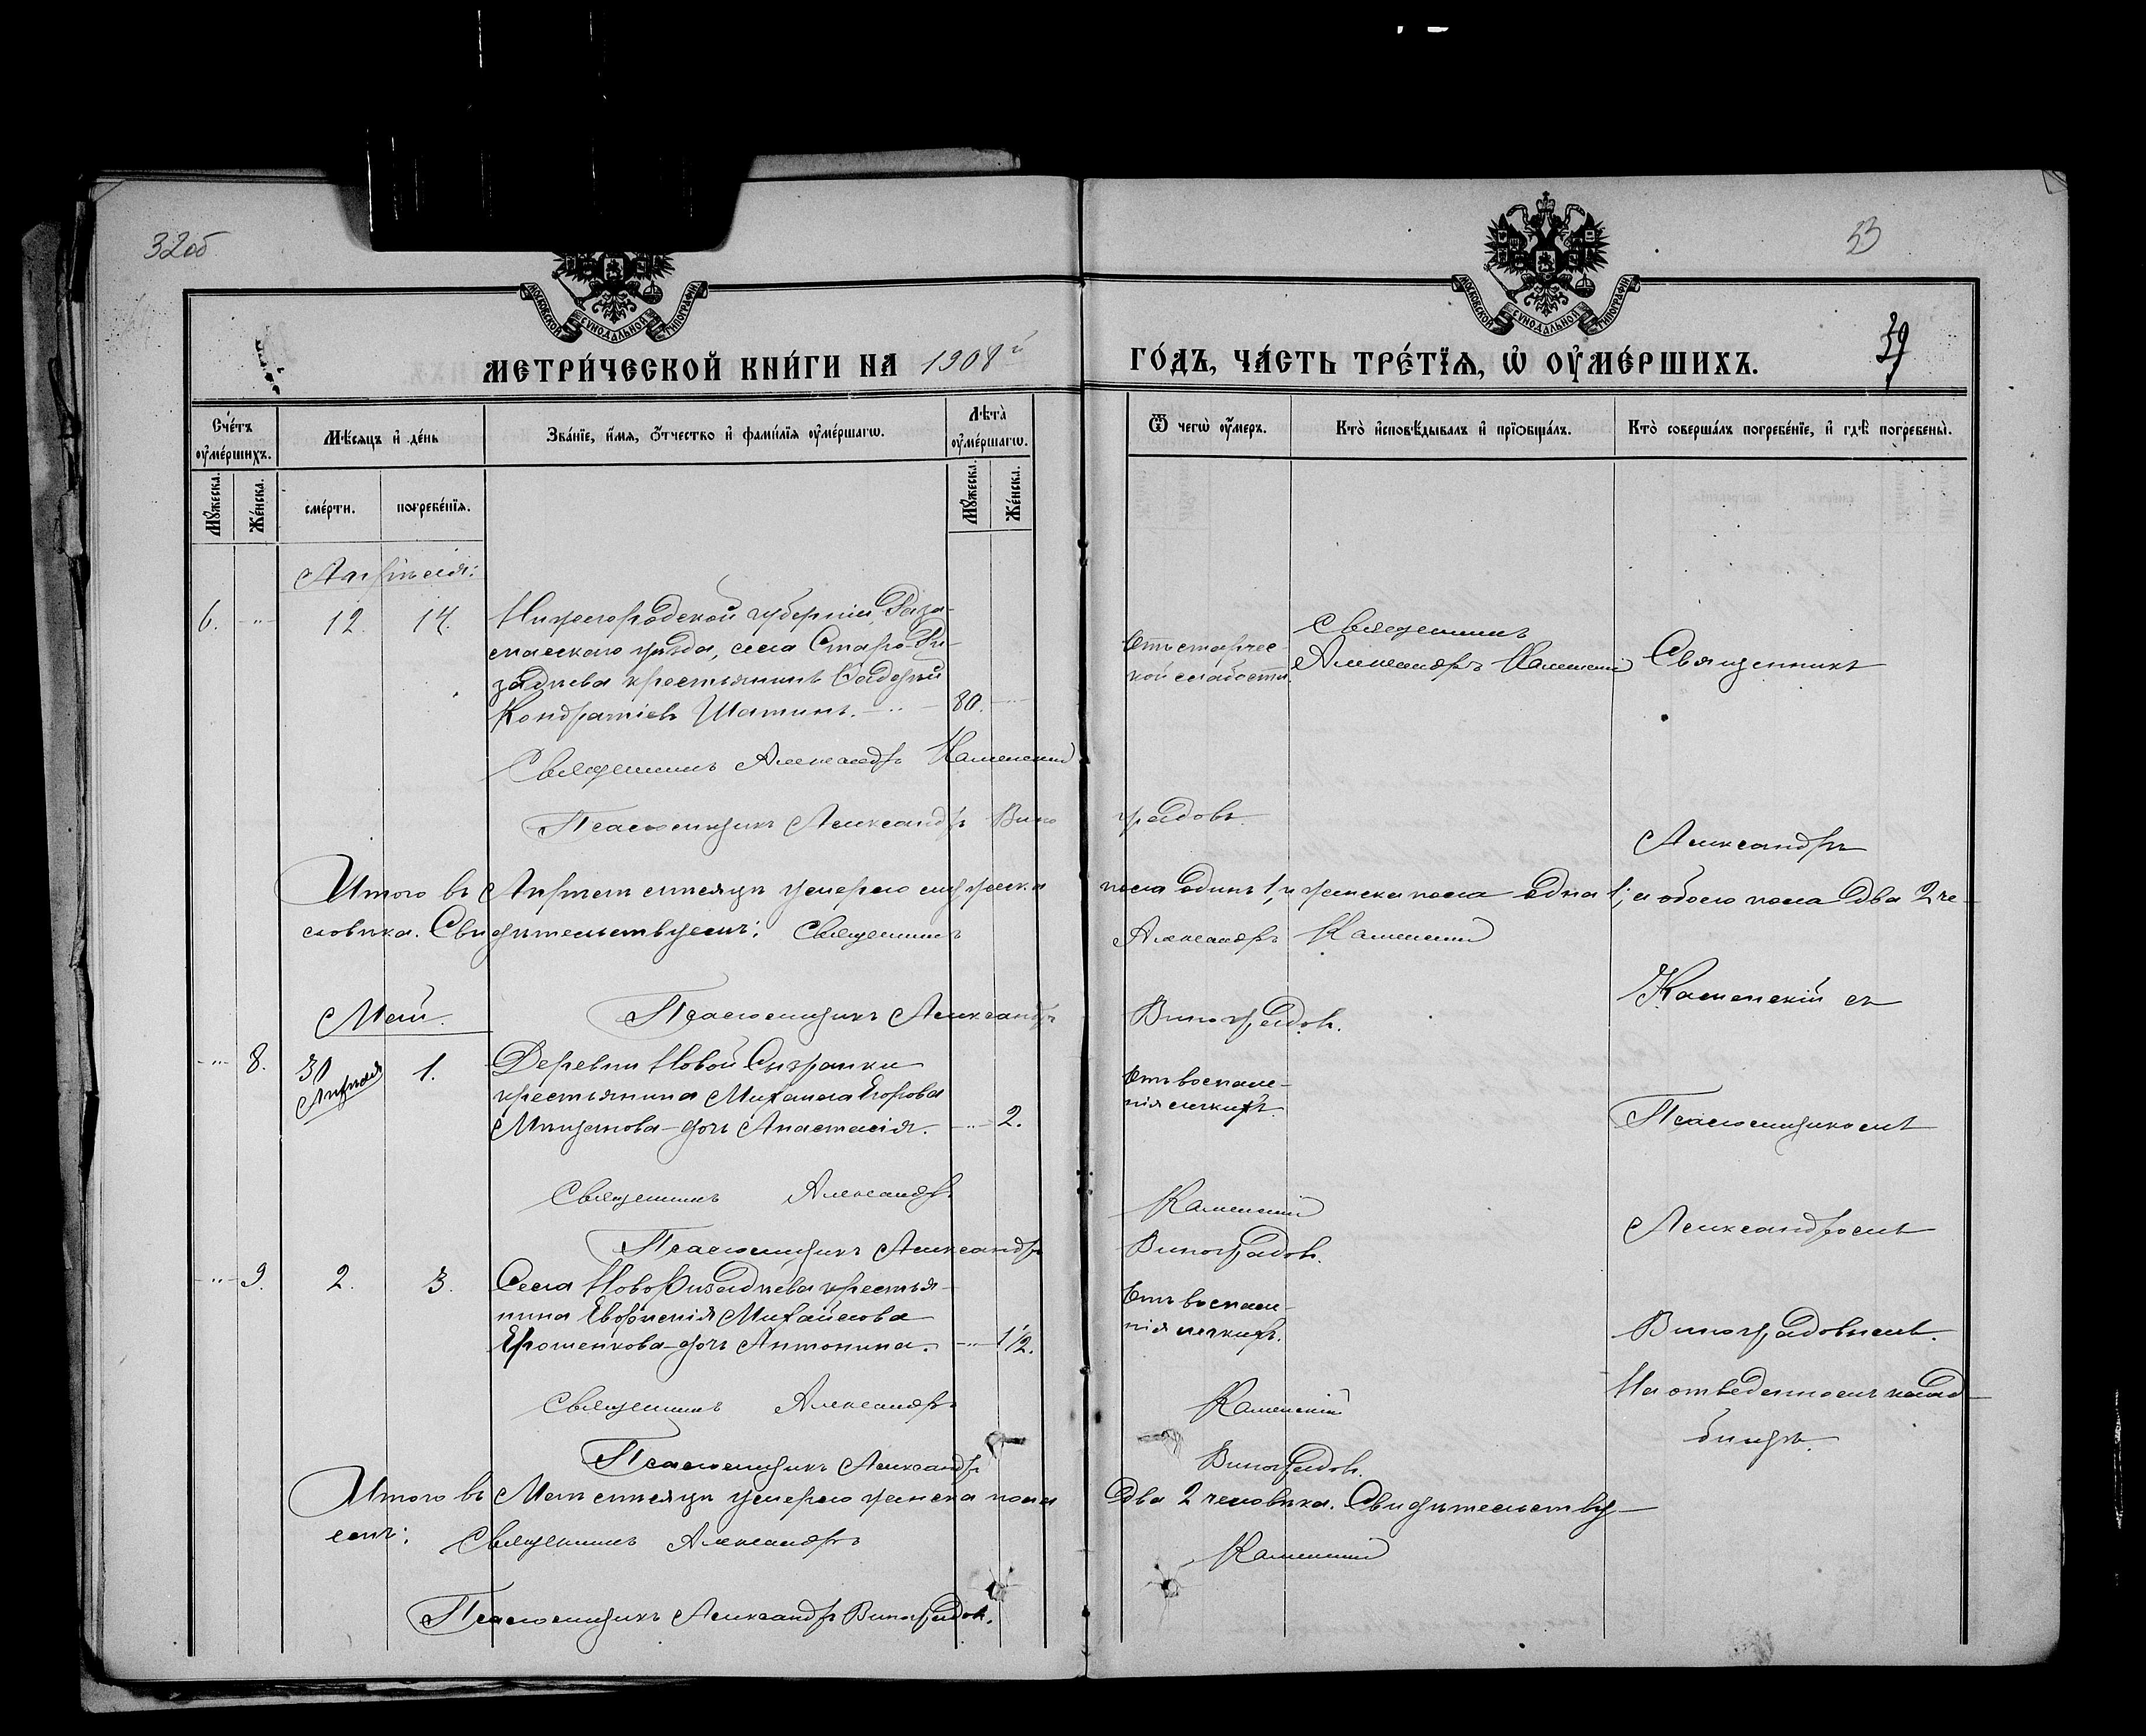 32об
33
39
МОСКОВСКОЙ СѴНОДАЛЬНОЙ ТИПОГРАФІИ
МОСКОВСКОЙ СѴНОДАЛЬНОЙ ТИПОГРАФІИ
МЕТРИ́ЧЕСКОЙ КНИ́ГИ НА 1908й ГО́ДЪ, ЧА́СТЬ ТРЕ́ТЇѦ, Ѡ҆ ОУ҆МЕ́РШИХЪ.
Сче́тъ оу҆ме́ршихъ.
Мꙋ́жеска.
Же́нска.
Мѣ́сѧцъ и҆ де́нь
сме́рти.
погребе́нїѧ.
Зва́нїе, и҆́мѧ, ѻ҆́тчество и҆ фами́лїѧ оу҆ме́ршагѡ.
Лѣ́та̀ оу҆ме́ршагѡ.
Мꙋ́жеска.
Же́нска.
Ѿ чегѡ̀ оу҆́меръ.
Кто̀ и҆сповѣ́дывалъ и҆ прїѡбща́лъ.
Кто̀ соверша́лъ погребе́нїе, и҆ гдѣ̀ погребены̀.
Апрѣля:
6. -"- 12. 14.
Нижегородской губерніи,
уѣзда, села Старо-
крестьянинъ
Кондратіевъ Шатинъ. -"- 80. -"-
Отъ старчес-
кой слабости.
Священникъ
Александръ Каменскій
Священникъ
Священникъ Александръ Каменскій
Псаломщикъ Александръ Виноградовъ.
Александръ
Итого въ Апрѣлѣ мѣсяцѣ умерло мужеска пола одинъ 1, и женска пола одна 1; а обоего пола два 2 че-
ловѣка. Свидѣтельствуемъ: Священникъ Александръ Каменскій
Каменскій съ
Псаломщикъ Александръ Виноградовъ.
Май.
-"- 8. 30 Апрѣля 1.
Деревни Новой
крестьянина Михаила Егорова
дочь Анастасія. -"- 2.
Отъ воспале-
нія легкихъ.
Псаломщикомъ
Священникъ Александръ Каменскій
Псаломщикъ Александръ Виноградовъ.
Александромъ
-"- 9. 2. 3.
Села крестья-
нина Михайлова
Ерошенкова дочь Антонина. -"- 1/2.
Отъ воспале-
нія легкихъ.
Виноградовымъ.
Священникъ Александръ Каменскій
На отведенномъ клад-
бищѣ.
Псаломщикъ Александръ Виноградовъ.
Итого въ Маѣ мѣсяцѣ умерло женска пола два 2 человѣка. Свидѣтельству-
емъ: Священникъ Александръ Каменскій
Псаломщикъ Александръ Виноградовъ.